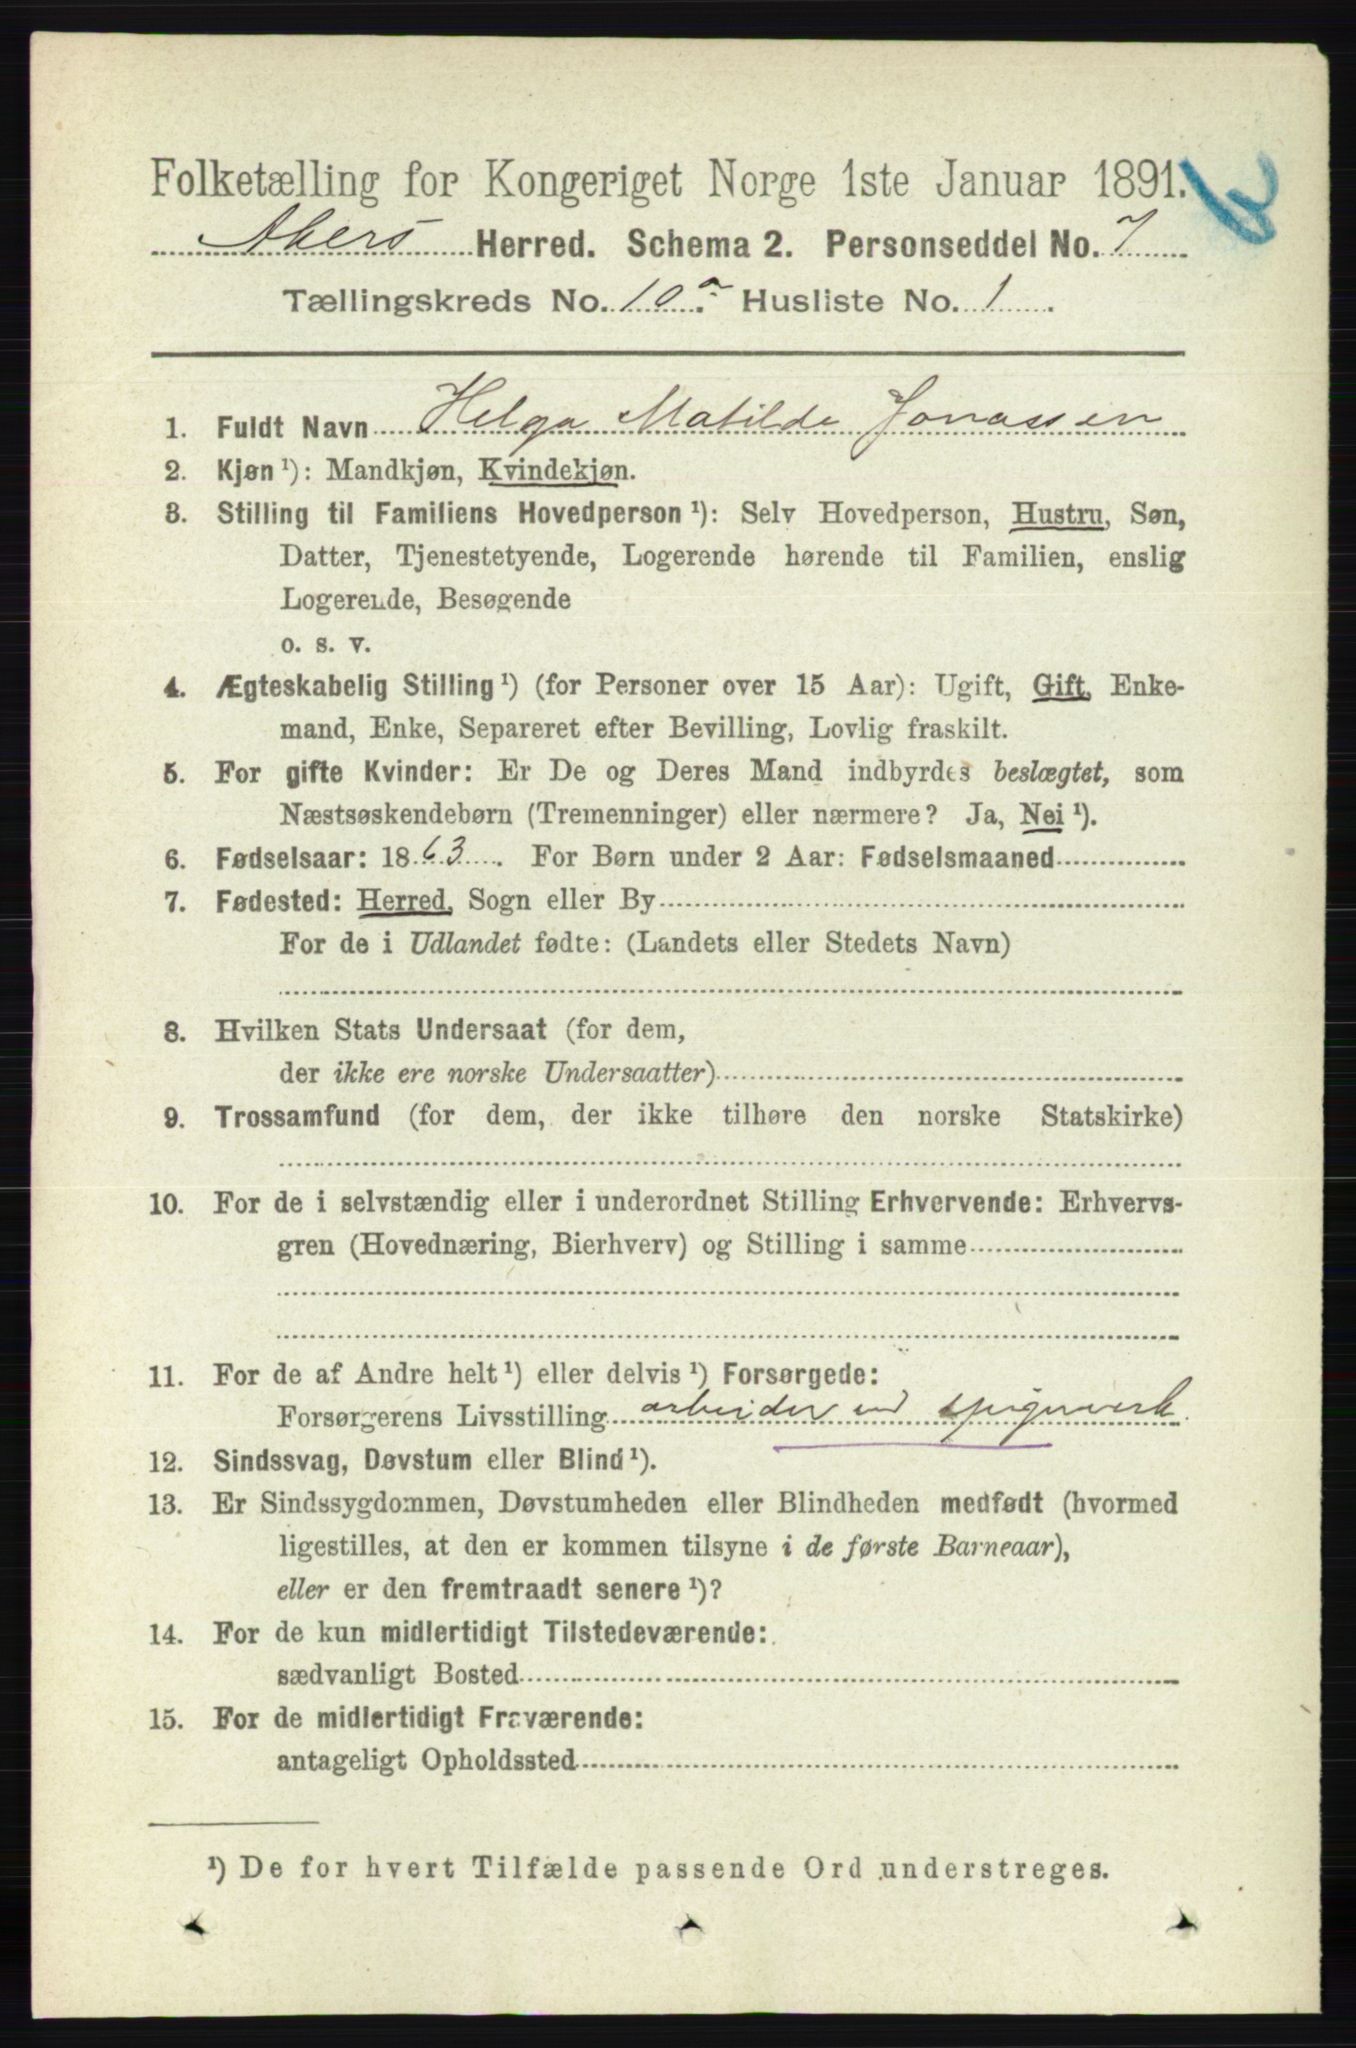 Folketælling for Kongeriget Norge 1ste Januar 1891.
Akers Herred. Schema 2. Personseddel No. 7
Tællingskreds No. 10 a. Husliste No. 1.
1. Fuldt Navn Helga Matilde Jonassen
2. Kjøn ¹): Mandkjøn, Kvindekjøn.
3. Stilling til Familiens Hovedperson ¹): Selv Hovedperson, Hustru, Søn,
Datter, Tjenestetyende, Logerende hørende til Familien, enslig
Logerende, Besøgende
o. s. v.
4. Ægteskabelig Stilling ¹) (for Personer over 15 Aar): Ugift, Gift, Enke-
mand, Enke, Separeret efter Bevilling, Lovlig fraskilt.
5. For gifte Kvinder: Er De og Deres Mand indbyrdes beslægtet, som
Næstsøskendebørn (Tremenninger) eller nærmere? Ja, Nei ¹).
6. Fødselsaar: 1863. For Børn under 2 Aar: Fødselsmaaned
7. Fødested: Herred, Sogn eller By
For de i Udlandet fødte: (Landets eller Stedets Navn)
8. Hvilken Stats Undersaat (for dem,
der ikke ere norske Undersaatter)
9. Trossamfund (for dem, der ikke tilhøre den norske Statskirke)
10. For de i selvstændig eller i underordnet Stilling Erhvervende: Erhvervs-
gren (Hovednæring, Bierhverv) og Stilling i samme
11. For de af Andre helt ¹) eller delvis ¹) Forsørgede:
Forsørgerens Livsstilling arbeider ved spigerverk
12. Sindssvag, Døvstum eller Blind ¹).
13. Er Sindssygdommen, Døvstumheden eller Blindheden medfødt (hvormed
ligestilles, at den er kommen tilsyne i de første Barneaar),
eller er den fremtraadt senere ¹)?
14. For de kun midlertidigt Tilstedeværende:
sædvanligt Bosted
15. For de midlertidigt Fraværende:
antageligt Opholdssted
¹) De for hvert Tilfælde passende Ord understreges.